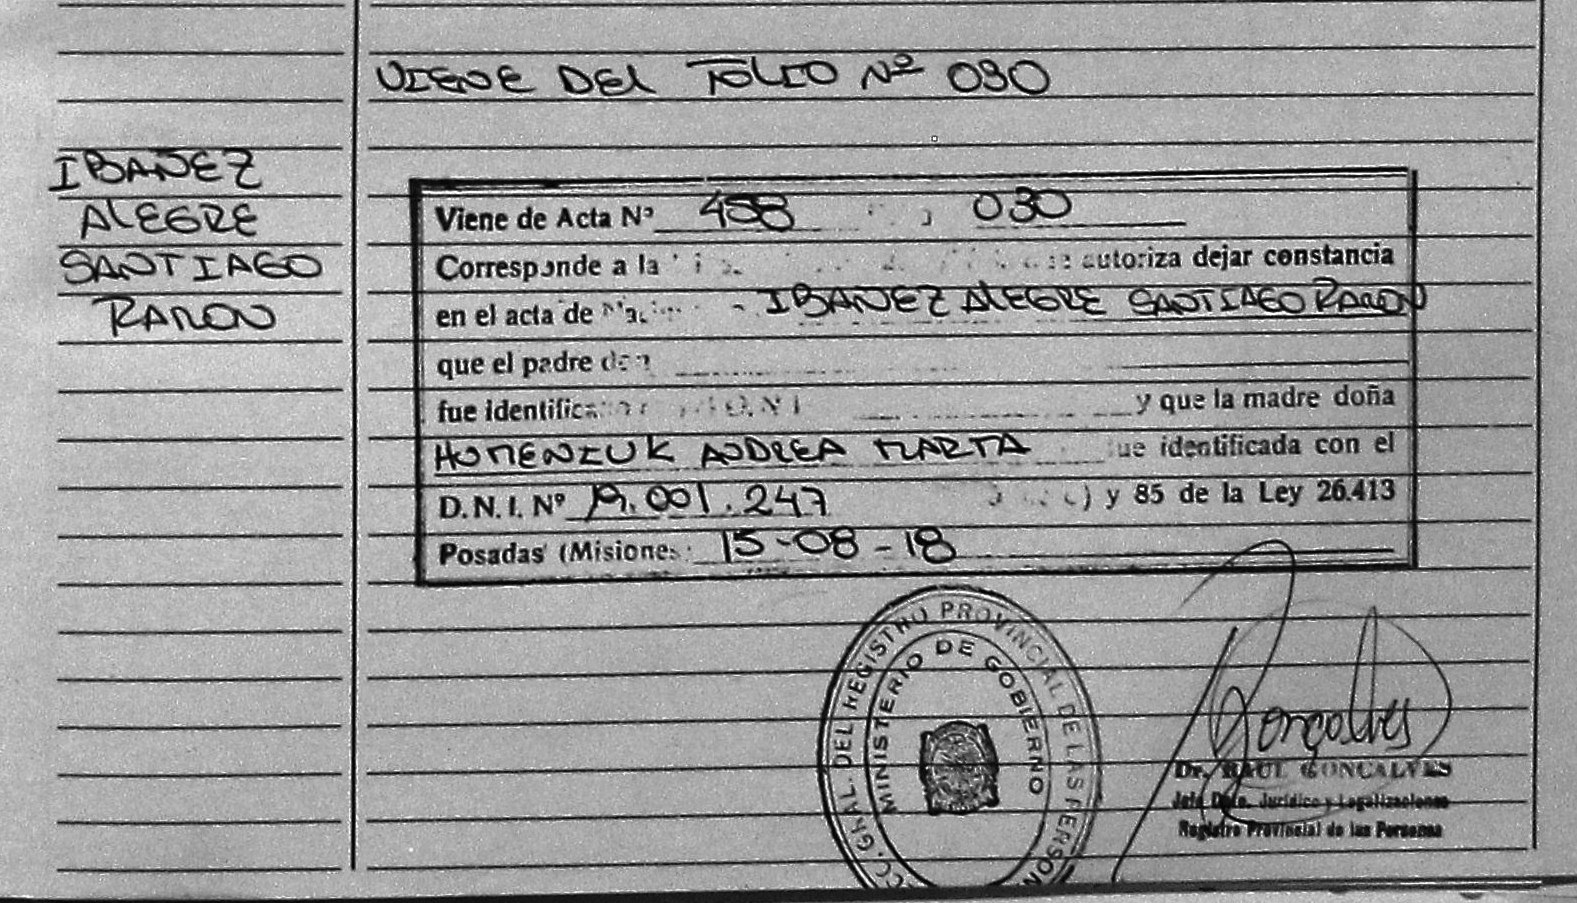 VIENE DEL FOLIO Nº 030
IBAÑEZ
ALEGRE
SANTIAGO
RAMON
Viene de Acta Nº 458 030
Corresponde a la autoriza dejar constancia
en el acta de IBAÑEZ ALEGRE SANTIAGO RAMON
que el padre don
fue identificado D.N.I y que la madre doña
HOMENIUK ANDREA MARTA fue identificada con el
D.N.I. Nº 19.001.247 ) y 85 de la Ley 26.413
Posadas (Misiones) 15-08-18
GRAL. DEL REGISTRO PROVINCIAL DE LAS PERSON
MINISTERIO DE GOBIERNO
Gonçalves
Dr. RAUL GONCALVES
Jefe Dpto. Jurídico y Legalizaciones
Registro Provincial de las Personas